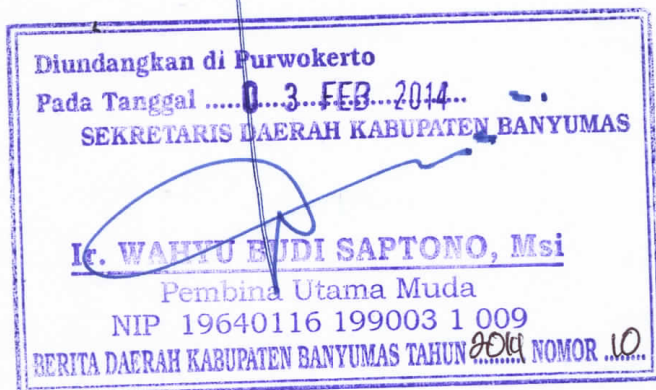 Diundangkan di Purwokerto
Pada Tanggal ..... 0 3 FEB 2014...
SEKRETARIS DAERAH KABUPATEN BANYUMAS
Ir. WAHYU BUDI SAPTONO, Msi
Pembina Utama Muda
NIP 19640116 199003 1 009
BERITA DAERAH KABUPATEN BANYUMAS TAHUN 2014 NOMOR 10